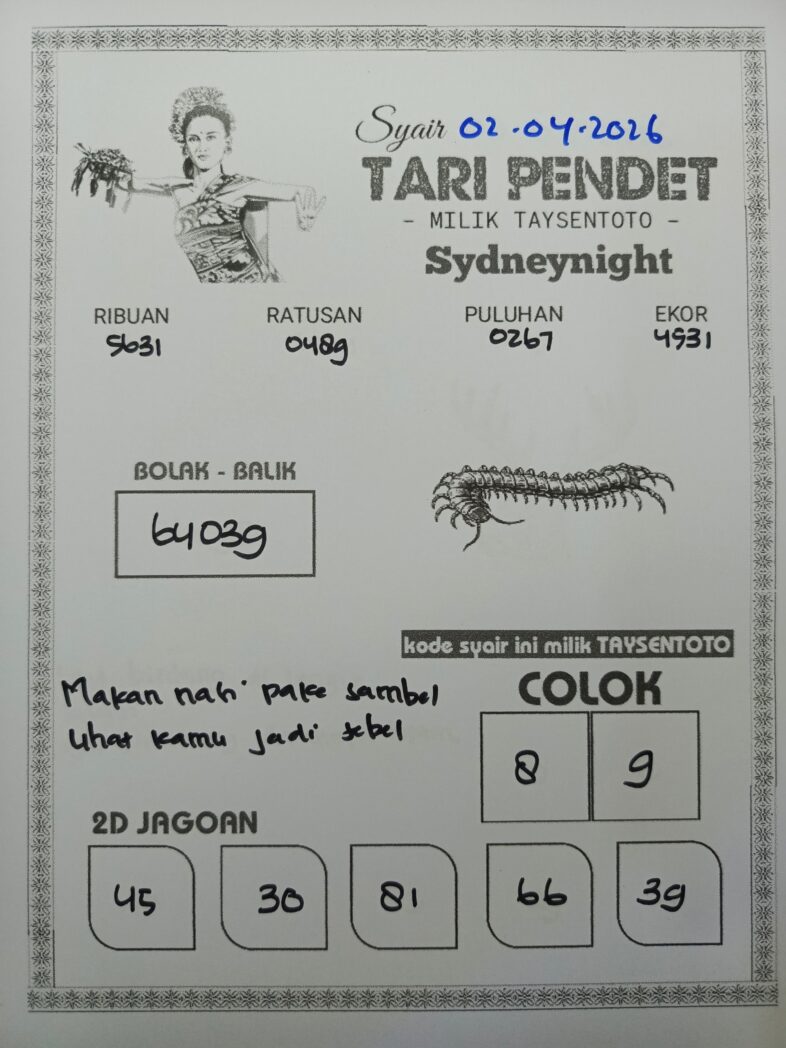 Syair 02.04.2026
TARI PENDET
- MILIK TAYSENTOTO -
Sydneynight
RIBUAN RATUSAN PULUHAN EKOR
5631 0489 0267 4531
BOLAK - BALIK
64039
kode syair ini milik TAYSENTOTO
COLOK
8 9
Makan nasi pake sambel
lihat kamu jadi sebel
2D JAGOAN
45 30 81 66 39